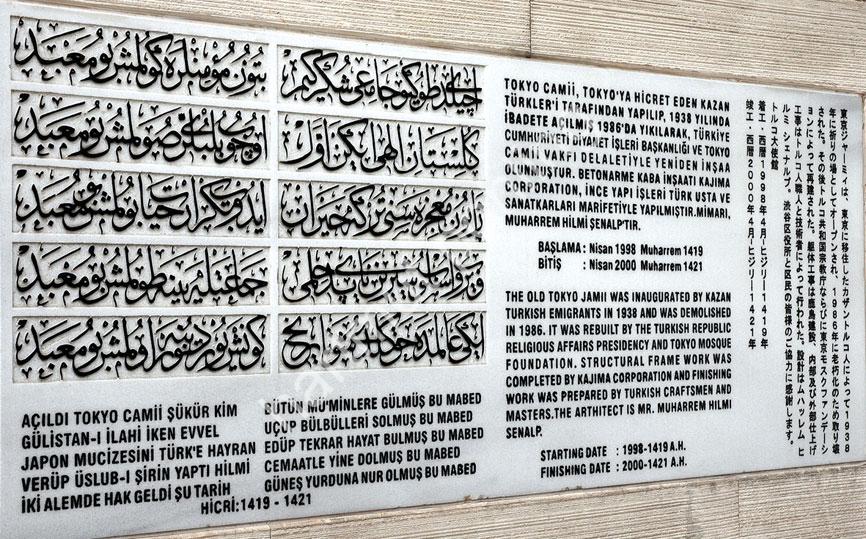 آچیلدی طوکیو جامعی شکر کیم
بتون مؤمنلره کولمش بو معبد
کلستان الهی ایکن اول
اوچوب بلبللری صولمش بو معبد
ژاپون معجزه سنی ترکه حیران
ایدوب تکرار حیات بولمش بو معبد
ویروب اسلوب شیرین یاپدی حلمی
جماعتله ینه طولمش بو معبد
ایکی عالمده حق کلدی شو تاریخ
کونش یوردینه نور اولمش بو معبد
AÇILDI TOKYO CAMII ŞÜKÜR KIM
GÜLİSTAN-I İLAHİ İKEN EVVEL
JAPON MUCİZESİNİ TÜRK'E HAYRAN
VERÜP ÜSLUB-I ŞİRİN YAPTI HİLMİ
İKİ ALEMDE HAK GELDİ ŞU TARİH
BÜTÜN MÜ'MİNLERE GÜLMÜŞ BU MABED
UÇUP BÜLBÜLLERİ SOLMUŞ BU MABED
EDÜP TEKRAR HAYAT BULMUŞ BU MABED
CEMAATLE YİNE DOLMUŞ BU MABED
GÜNEŞ YURDUNA NUR OLMUŞ BU MABED
HİCRİ:1419 - 1421
TOKYO CAMII, TOKYO'YA HICRET EDEN KAZAN
TÜRKLER'İ TARAFINDAN YAPILIP, 1938 YILINDA
İBADETE AÇILMIŞ 1986'DA YIKILARAK, TÜRKİYE
CUMHURİYETİ DİYANET İŞLERİ BAŞKANLIĞI VE TOKYO
CAMİİ VAKFI DELALETİYLE YENİDEN İNŞAA
OLUNMUŞTUR. BETONARME KABA İNŞAATI KAJIMA
CORPORATION, İNCE YAPI İŞLERİ TÜRK USTA VE
SANATKARLARI MARİFETİYLE YAPILMIŞTIR.MİMARI,
MUHARREM HİLMİ ŞENALP'TIR.
BAŞLAMA : Nisan 1998 Muharrem 1419
BİTİŞ : Nisan 2000 Muharrem 1421
THE OLD TOKYO JAMII WAS INAUGURATED BY KAZAN
TURKISH EMIGRANTS IN 1938 AND WAS DEMOLISHED
IN 1986. IT WAS REBUILT BY THE TURKISH REPUBLIC
RELIGIOUS AFFAIRS PRESIDENCY AND TOKYO MOSQUE
FOUNDATION. STRUCTURAL FRAME WORK WAS
COMPLETED BY KAJIMA CORPORATION AND FINISHING
WORK WAS PREPARED BY TURKISH CRAFTSMEN AND
MASTERS.THE ARTHITECT IS MR. MUHARREM HILMI
SENALP.
STARTING DATE : 1998-1419 A.H.
FINISHING DATE : 2000-1421 A.H.
東京ジャーミイは、東京に移住したカザントルコ人によって１９３８
年に祈りの場としてオープンされ、１９８６年に老朽化のため取り壊
された。その後トルコ共和国宗教庁ならびに東京モスクファンデーシ
ョンによって再建された。躯体工事は鹿島建設、内部及び外部仕上げ
工事はトルコ人職人と技術者によって行われた。設計はムハッレム ヒ
ルミ シェナルプ。渋谷区役所と区民の皆様のご協力に感謝します。
トルコ大使館
着工・西暦１９９８年４月ーヒジリー１４１９年
竣工・西暦２０００年４月ーヒジリー１４２１年